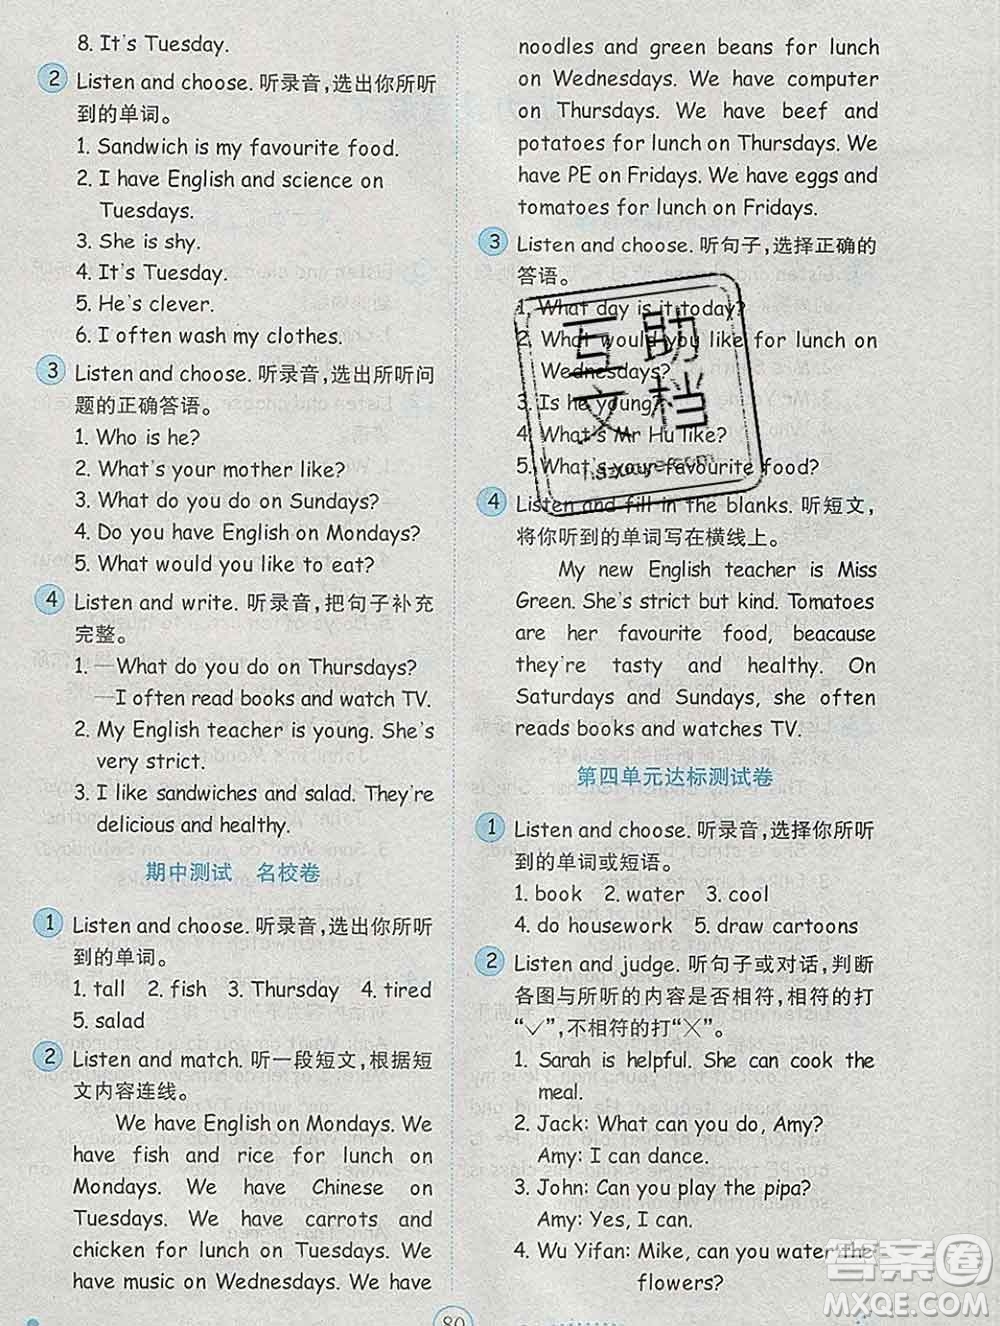 8. It's Tuesday.
2 Listen and choose. 听录音,选出你所听
到的单词。
1. Sandwich is my favourite food.
2. I have English and science on
Tuesdays.
3. She is shy.
4. It's Tuesday.
5. He's clever.
6. I often wash my clothes.
3 Listen and choose. 听录音,选出所听问
题的正确答语。
1. Who is he?
2. What's your mother like?
3. What do you do on Sundays?
4. Do you have English on Mondays?
5. What would you like to eat?
4 Listen and write. 听录音,把句子补充
完整。
1. —What do you do on Thursdays?
—I often read books and watch TV.
2. My English teacher is young. She's
very strict.
3. I like sandwiches and salad. They're
delicious and healthy.
期中测试 名校卷
1 Listen and choose. 听录音,选出你所听
到的单词。
1. tall 2. fish 3. Thursday 4. tired
5. salad
2 Listen and match. 听一段短文,根据短
文内容连线。
We have English on Mondays. We
have fish and rice for lunch on
Mondays. We have Chinese on
Tuesdays. We have carrots and
chicken for lunch on Tuesdays. We
have music on Wednesdays. We have
noodles and green beans for lunch
on Wednesdays. We have computer
on Thursdays. We have beef and
potatoes for lunch on Thursdays. We
have PE on Fridays. We have eggs and
tomatoes for lunch on Fridays.
3 Listen and choose. 听句子,选择正确的
答语。
1. What day is it today?
2. What would you like for lunch on
Wednesdays?
3. Is he young?
4. What's Mr Hu like?
5. What's your favourite food?
4 Listen and fill in the blanks. 听短文,
将你听到的单词写在横线上。
My new English teacher is Miss
Green. She's strict but kind. Tomatoes
are her favourite food, beacause
they're tasty and healthy. On
Saturdays and Sundays, she often
reads books and watches TV.
第四单元达标测试卷
1 Listen and choose. 听录音,选择你所听
到的单词或短语。
1. book 2. water 3. cool
4. do housework 5. draw cartoons
2 Listen and judge. 听句子或对话,判断
各图与所听的内容是否相符,相符的打
“✓”,不相符的打“×”。
1. Sarah is helpful. She can cook the
meal.
2. Jack: What can you do, Amy?
Amy: I can dance.
3. John: Can you play the pipa?
Amy: Yes, I can.
4. Wu Yifan: Mike, can you water the
flowers?
80
互助
文档
答案圈
MXQE.COM